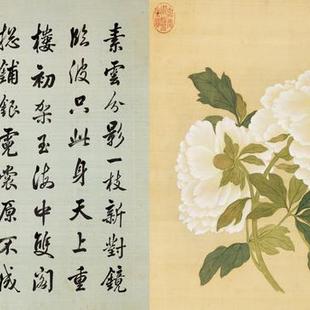 素雲分影一枝新對鏡
臨波只此身天上重
樓初架玉海中雙閣
總鋪銀霓裳原不